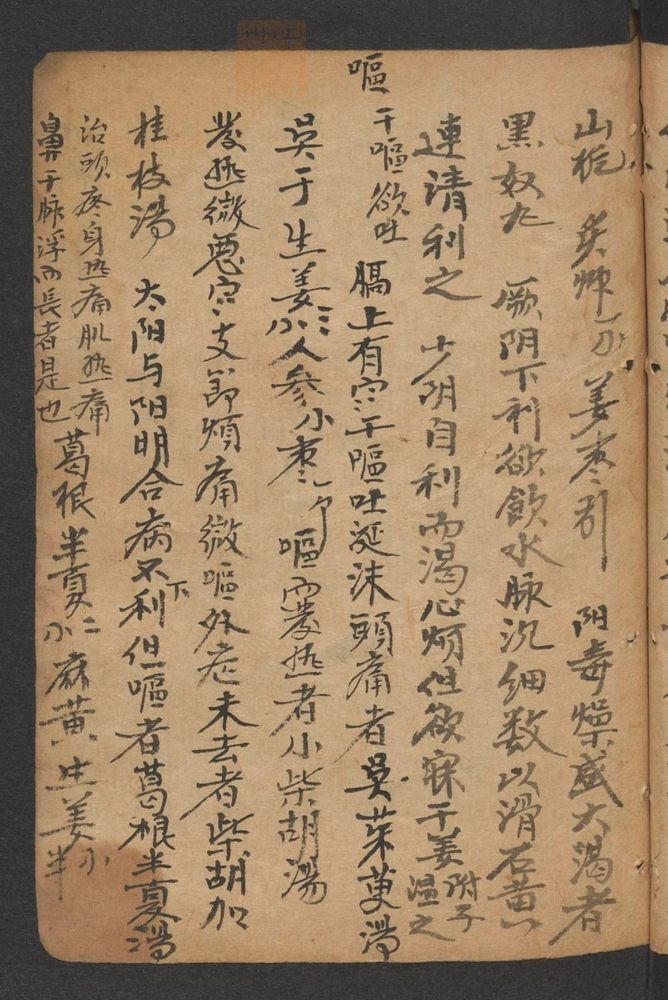 山栀 炙艸 姜枣引 阳毒燥盛大渴者
黑奴丸 厥阴下利欲飲水脉沉细数以滑石黄
連清利之 少阴自利而渴心烦但欲寐干姜附子温之
嘔 干嘔欲吐 膈上有寒干嘔吐涎沫頭痛者吴茱萸湯
吴于生姜人参小枣 嘔而發热者小柴胡湯
發热微恶寒支節煩痛微嘔外症未去者柴胡加
桂枝湯 太阳与阳明合病不下利但嘔者葛根半夏湯
治頭疼身热痛肌热痛
鼻干脉浮而長者是也 葛根半夏麻黄生姜